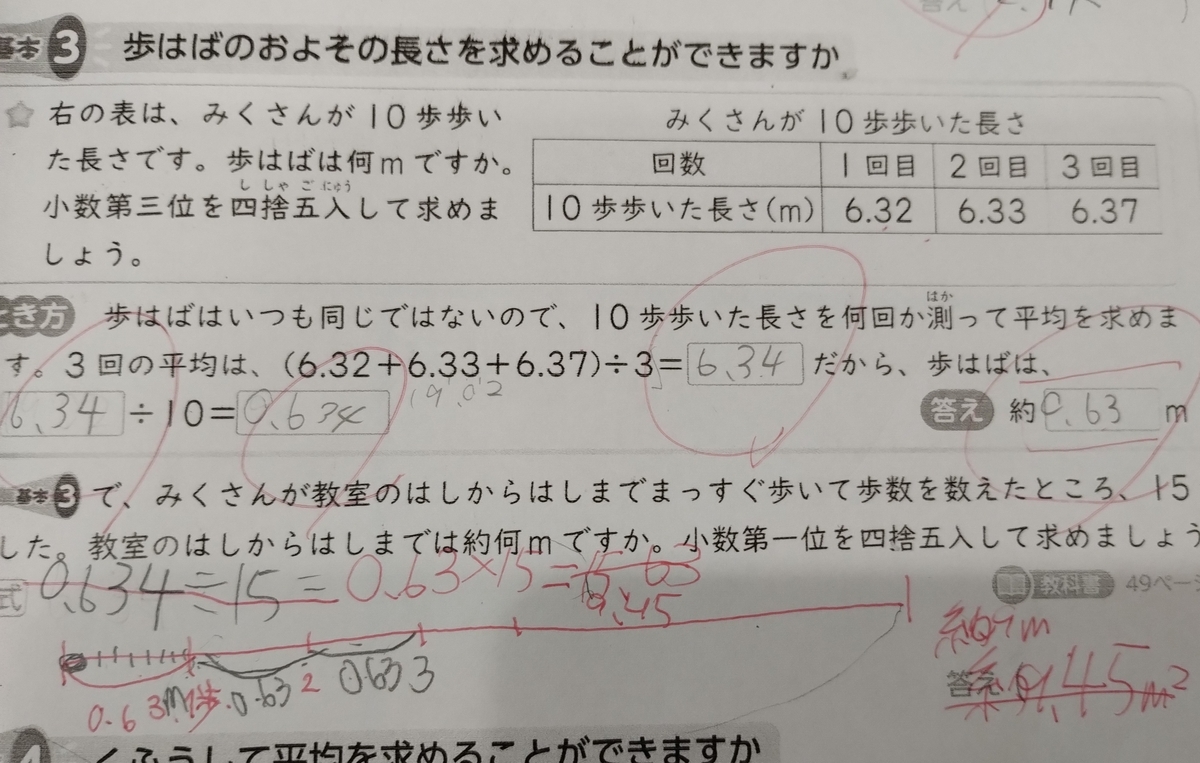 基本3 歩はばのおよその長さを求めることができますか
右の表は、みくさんが10歩歩い
た長さです。歩はばは何mですか。
し しゃ ご にゅう
小数第三位を四捨五入して求めま
しょう。
みくさんが10歩歩いた長さ
回数 1回目 2回目 3回目
10歩歩いた長さ(m) 6.32 6.33 6.37
とき方 歩はばはいつも同じではないので、10歩歩いた長さを何回か測って平均を求めま
はか
す。3回の平均は、(6.32+6.33+6.37)÷3=6.34だから、歩はばは、
6.34÷10=0.634 19.02
答え 約0.63m
基本3で、みくさんが教室のはしからはしまでまっすぐ歩いて歩数を数えたところ、15
した。教室のはしからはしまでは約何mですか。小数第一位を四捨五入して求めましょう
教科書 49ページ
式 0.634÷15= 0.63×15=
9.45
0.63m 1歩 0.63 2 0.63 3
答え
くふうして平均を求めることができますか